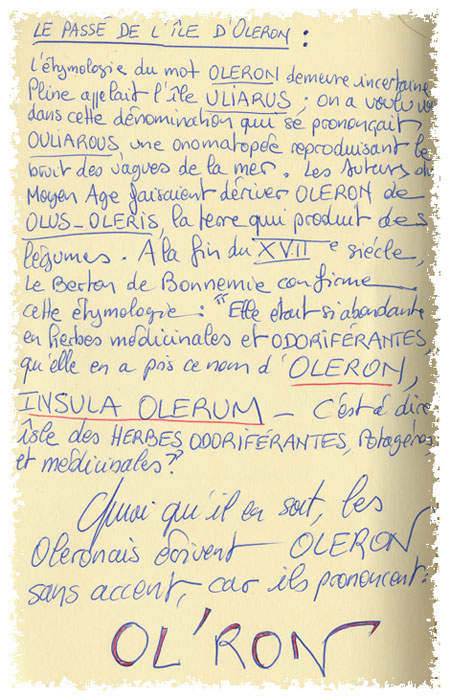 LE PASSÉ DE L'ÎLE D'OLERON :
L'étymologie du mot OLERON demeure incertaine
Pline appelait l'île ULIARUS ; on a voulu
dans cette dénomination qui se prononçait
OULIAROUS une onomatopée reproduisant le
bruit des vagues de la mer. Les Auteurs du
Moyen Age faisaient dériver OLERON de
OLUS-OLERIS, la terre qui produit des
légumes. A la fin du XVIIe siècle,
Le Berton de Bonnemie confirme
cette étymologie : "Elle était si abondante
en herbes médicinales et ODORIFÉRANTES
qu'elle en a pris ce nom d'OLERON,
INSULA OLERUM - C'est à dire
isle des HERBES ODORIFÉRANTES, Potagères
et médicinales"
Quoi qu'il en soit, les
Oleronais écrivent OLERON
sans accent, car ils prononcent :
OL'RON